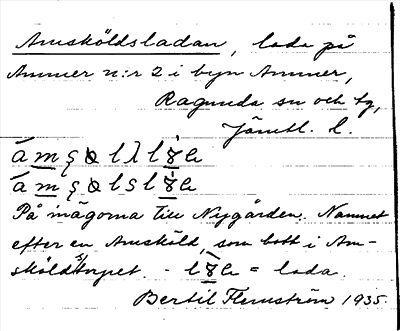 Amsköldsladan, lada på
Ammer n:r 2 i byn Ammer,
Ragunda sn och tg,
Jämtl. l.
På inägorna till Nygården. Namnet
efter en Amsköld, som bott i Am-
sköldstorpet. - = lada.
Bertil Flemström 1935.